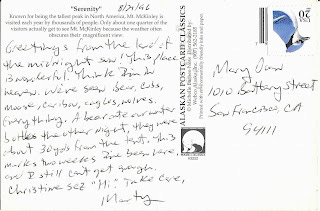 "Serenity" 8/21/96
Known for being the tallest peak in North America, Mt. McKinley is
visited each year by thousands of tourists. Only about one quarter of the
visitors actually get to see Mt. McKinley because the weather often
obscures their magnificent view.
Greetings from the land of
the midnight sun! This place
is wonderful. Think I'm in
heaven. We've seen bear, cubs,
moose, caribou, eagles, wolves.
Everything. A bear ate our water
bottles the other night, they were
about 30 yds from the tent. This
marks two weeks I've been here
and I still can't get enough.
Christine sez "Hi". Take care,
Marty
ALASKAN POSTCARD CLASSICS
USA 20
Mary Dow
1010 Battery Street
San Francisco, CA
94111